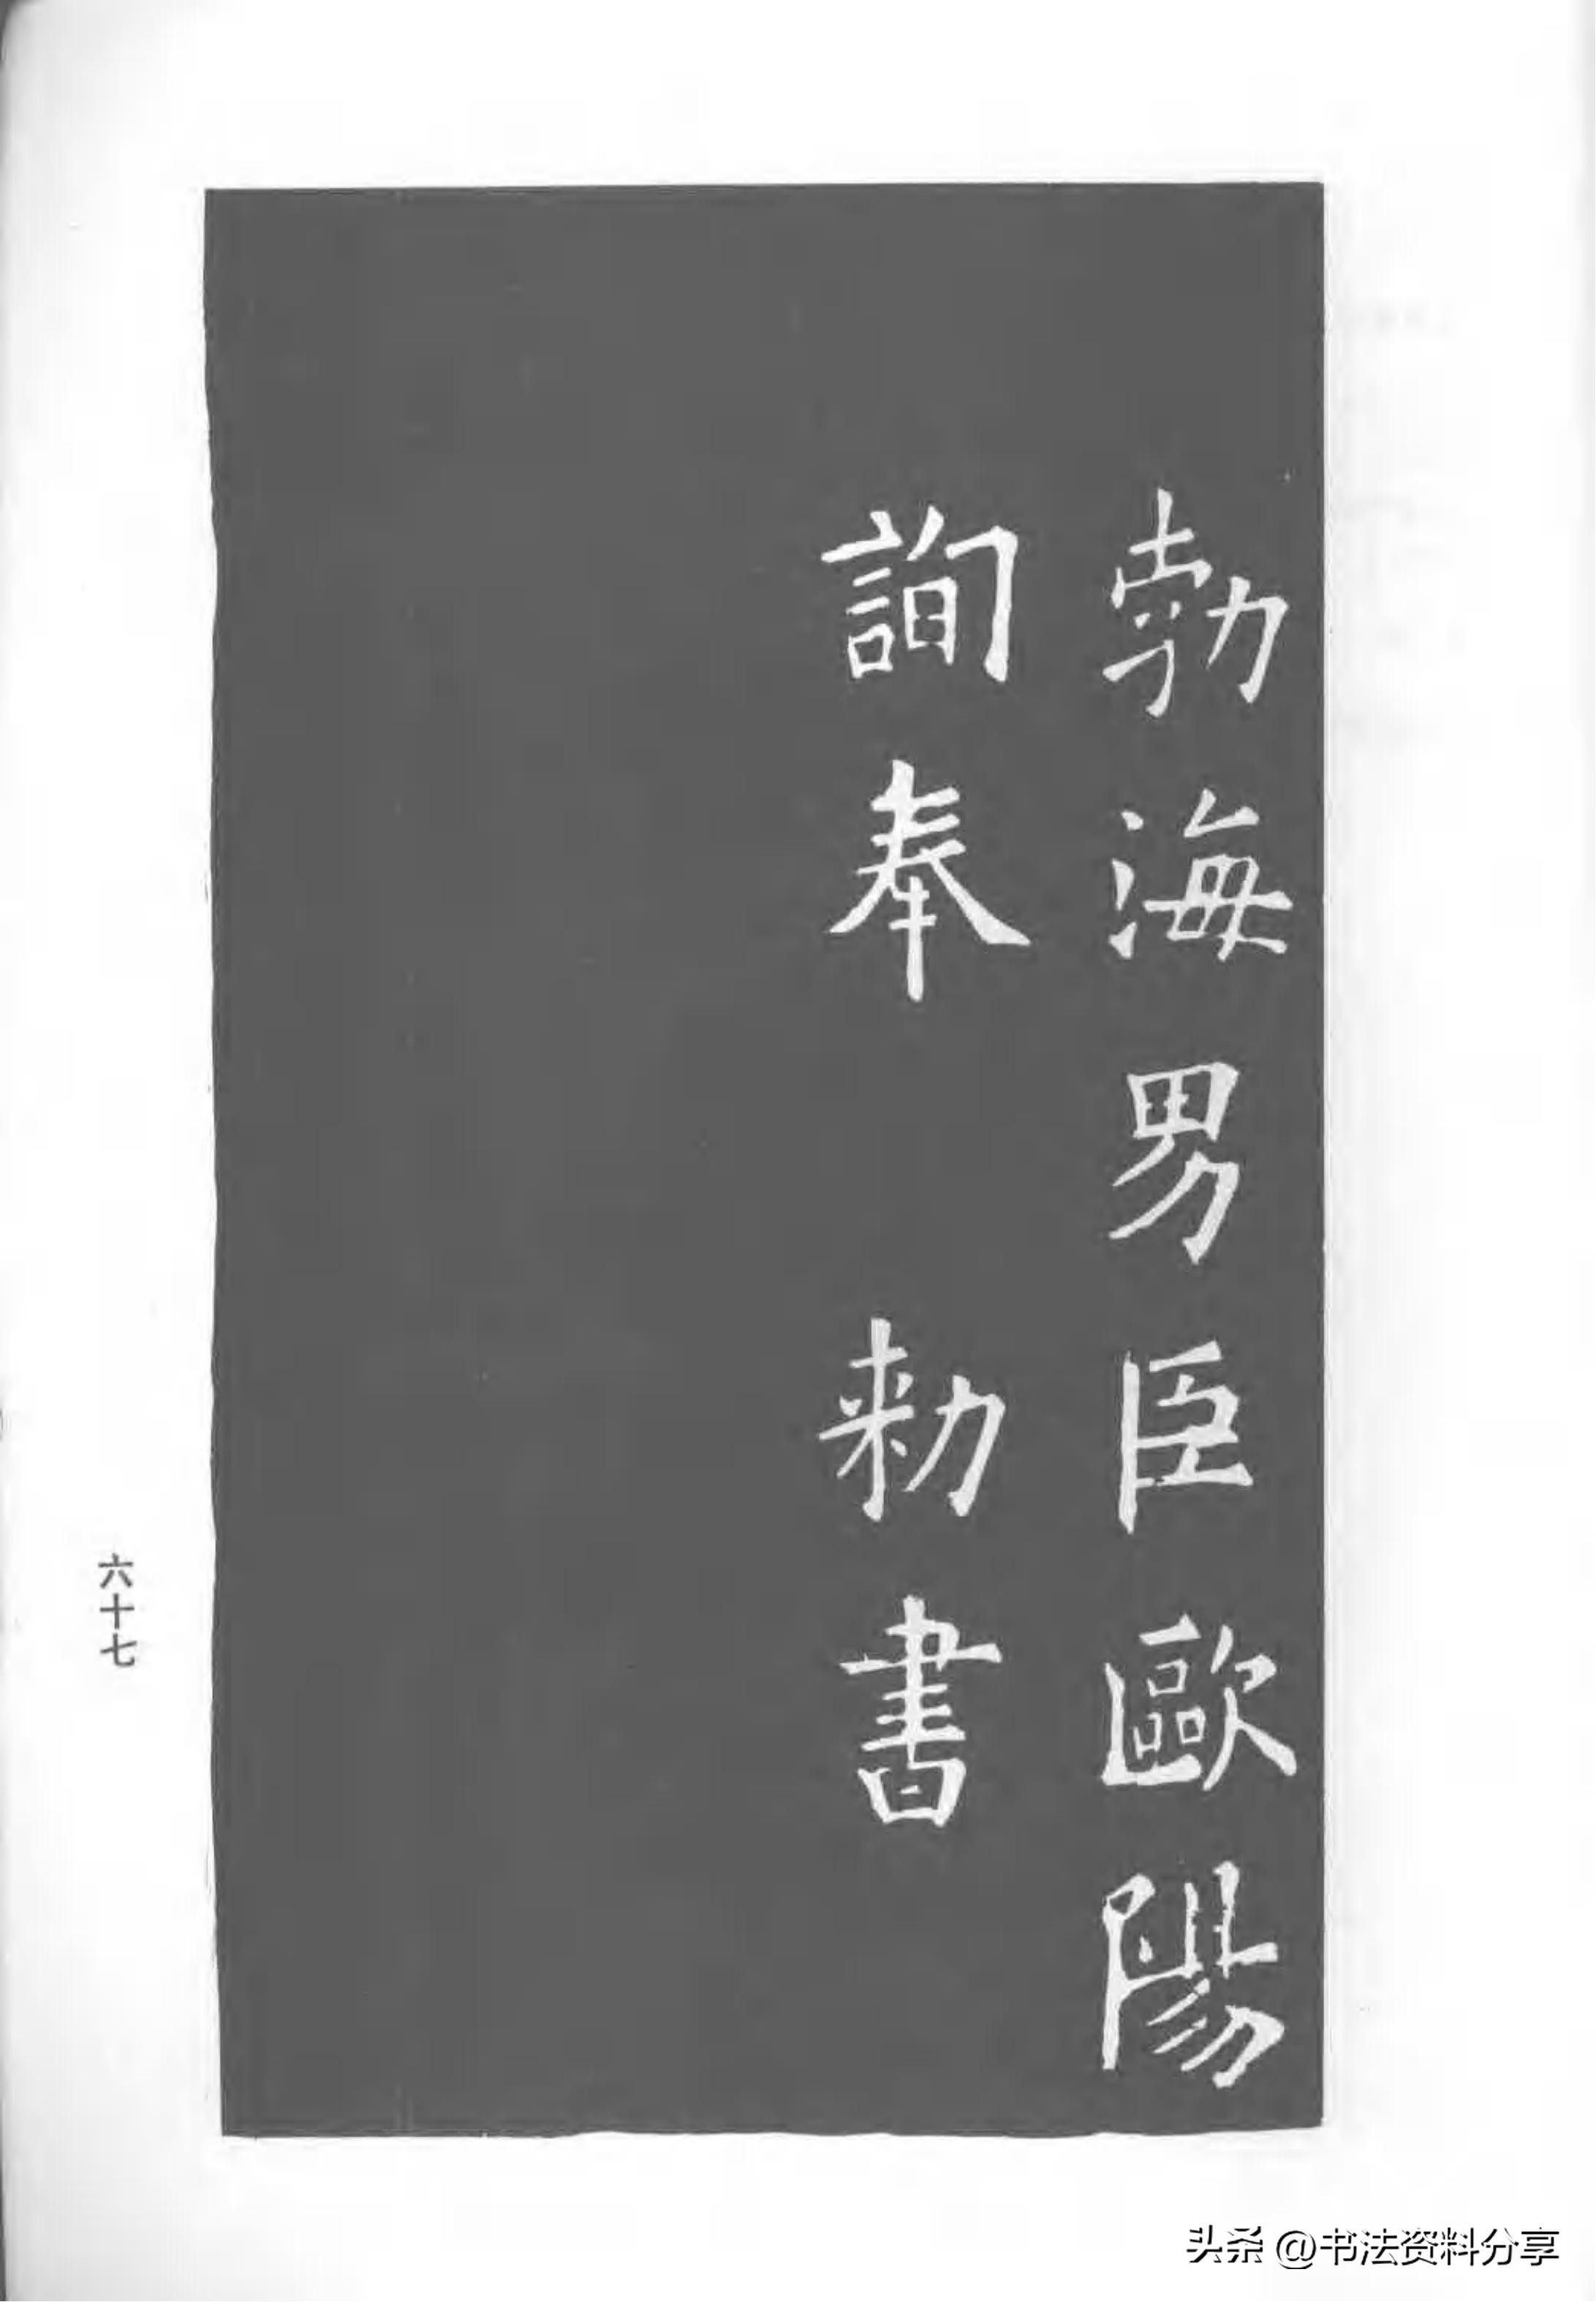 勃海男臣歐陽
詢奉 勑書
六十七
头条 @书法资料分享